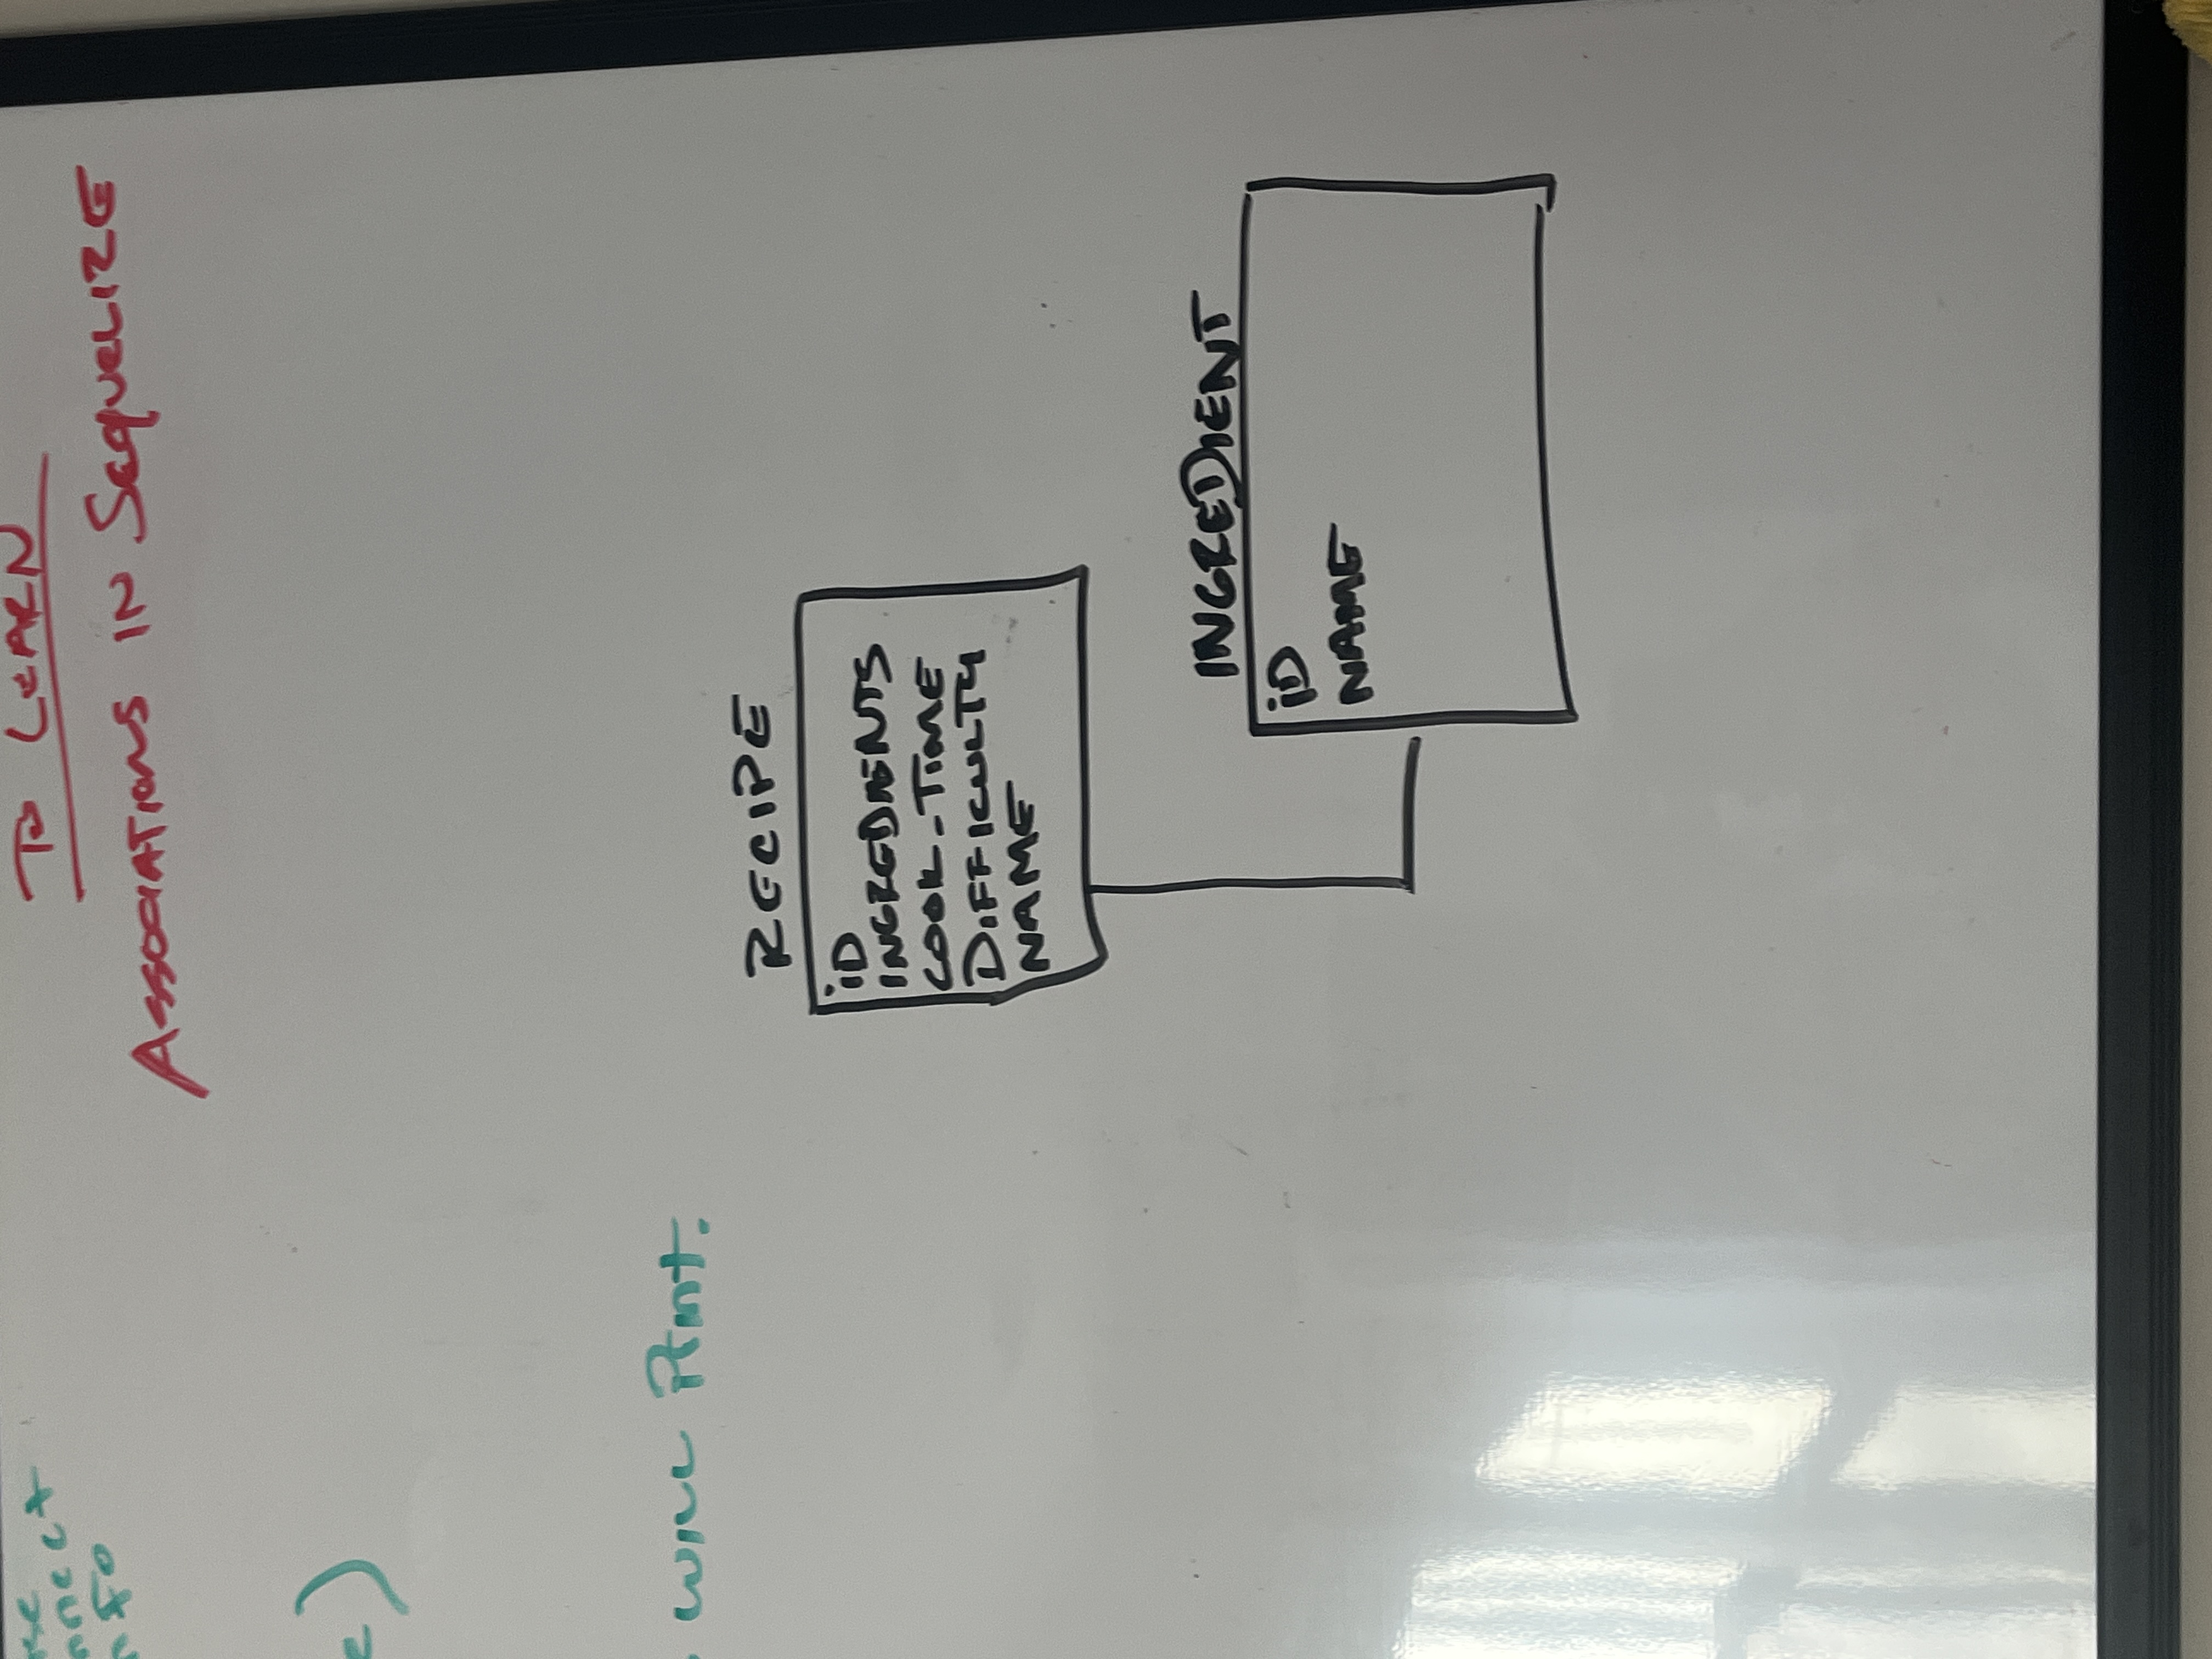 To LEARN
ASSOCIATIONS IN SEQUELIZE
nnect
nfo
)
WILL Print.
RECIPE
iD
INGREDIENTS
COOK_TIME
DIFFICULTY
NAME
INGREDIENT
iD
NAME